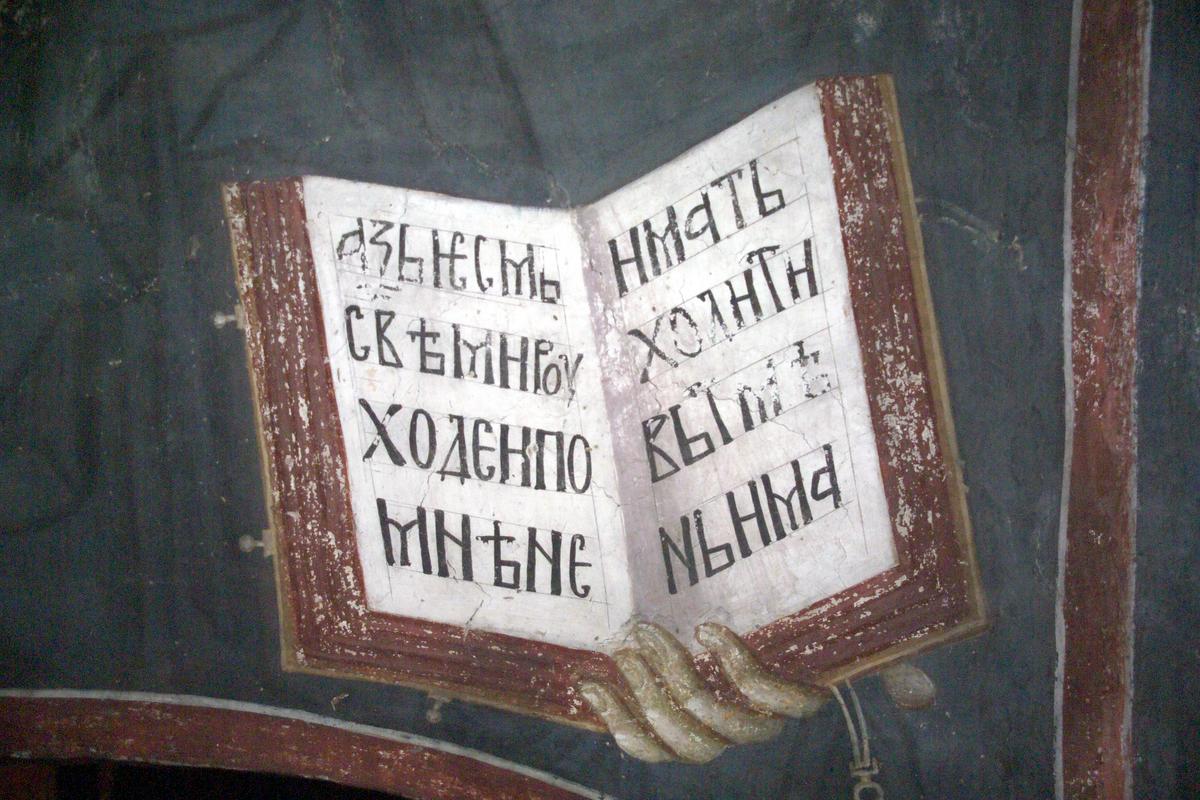 азьѥсмь
свѣмироу
ходеипо
мнѣне
имать
ходити
вьтмѣ
ньима